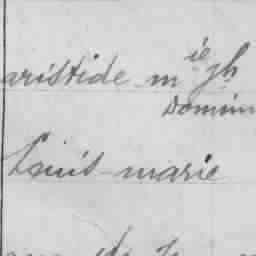 aristide mie jh
Domin
Louis-marie